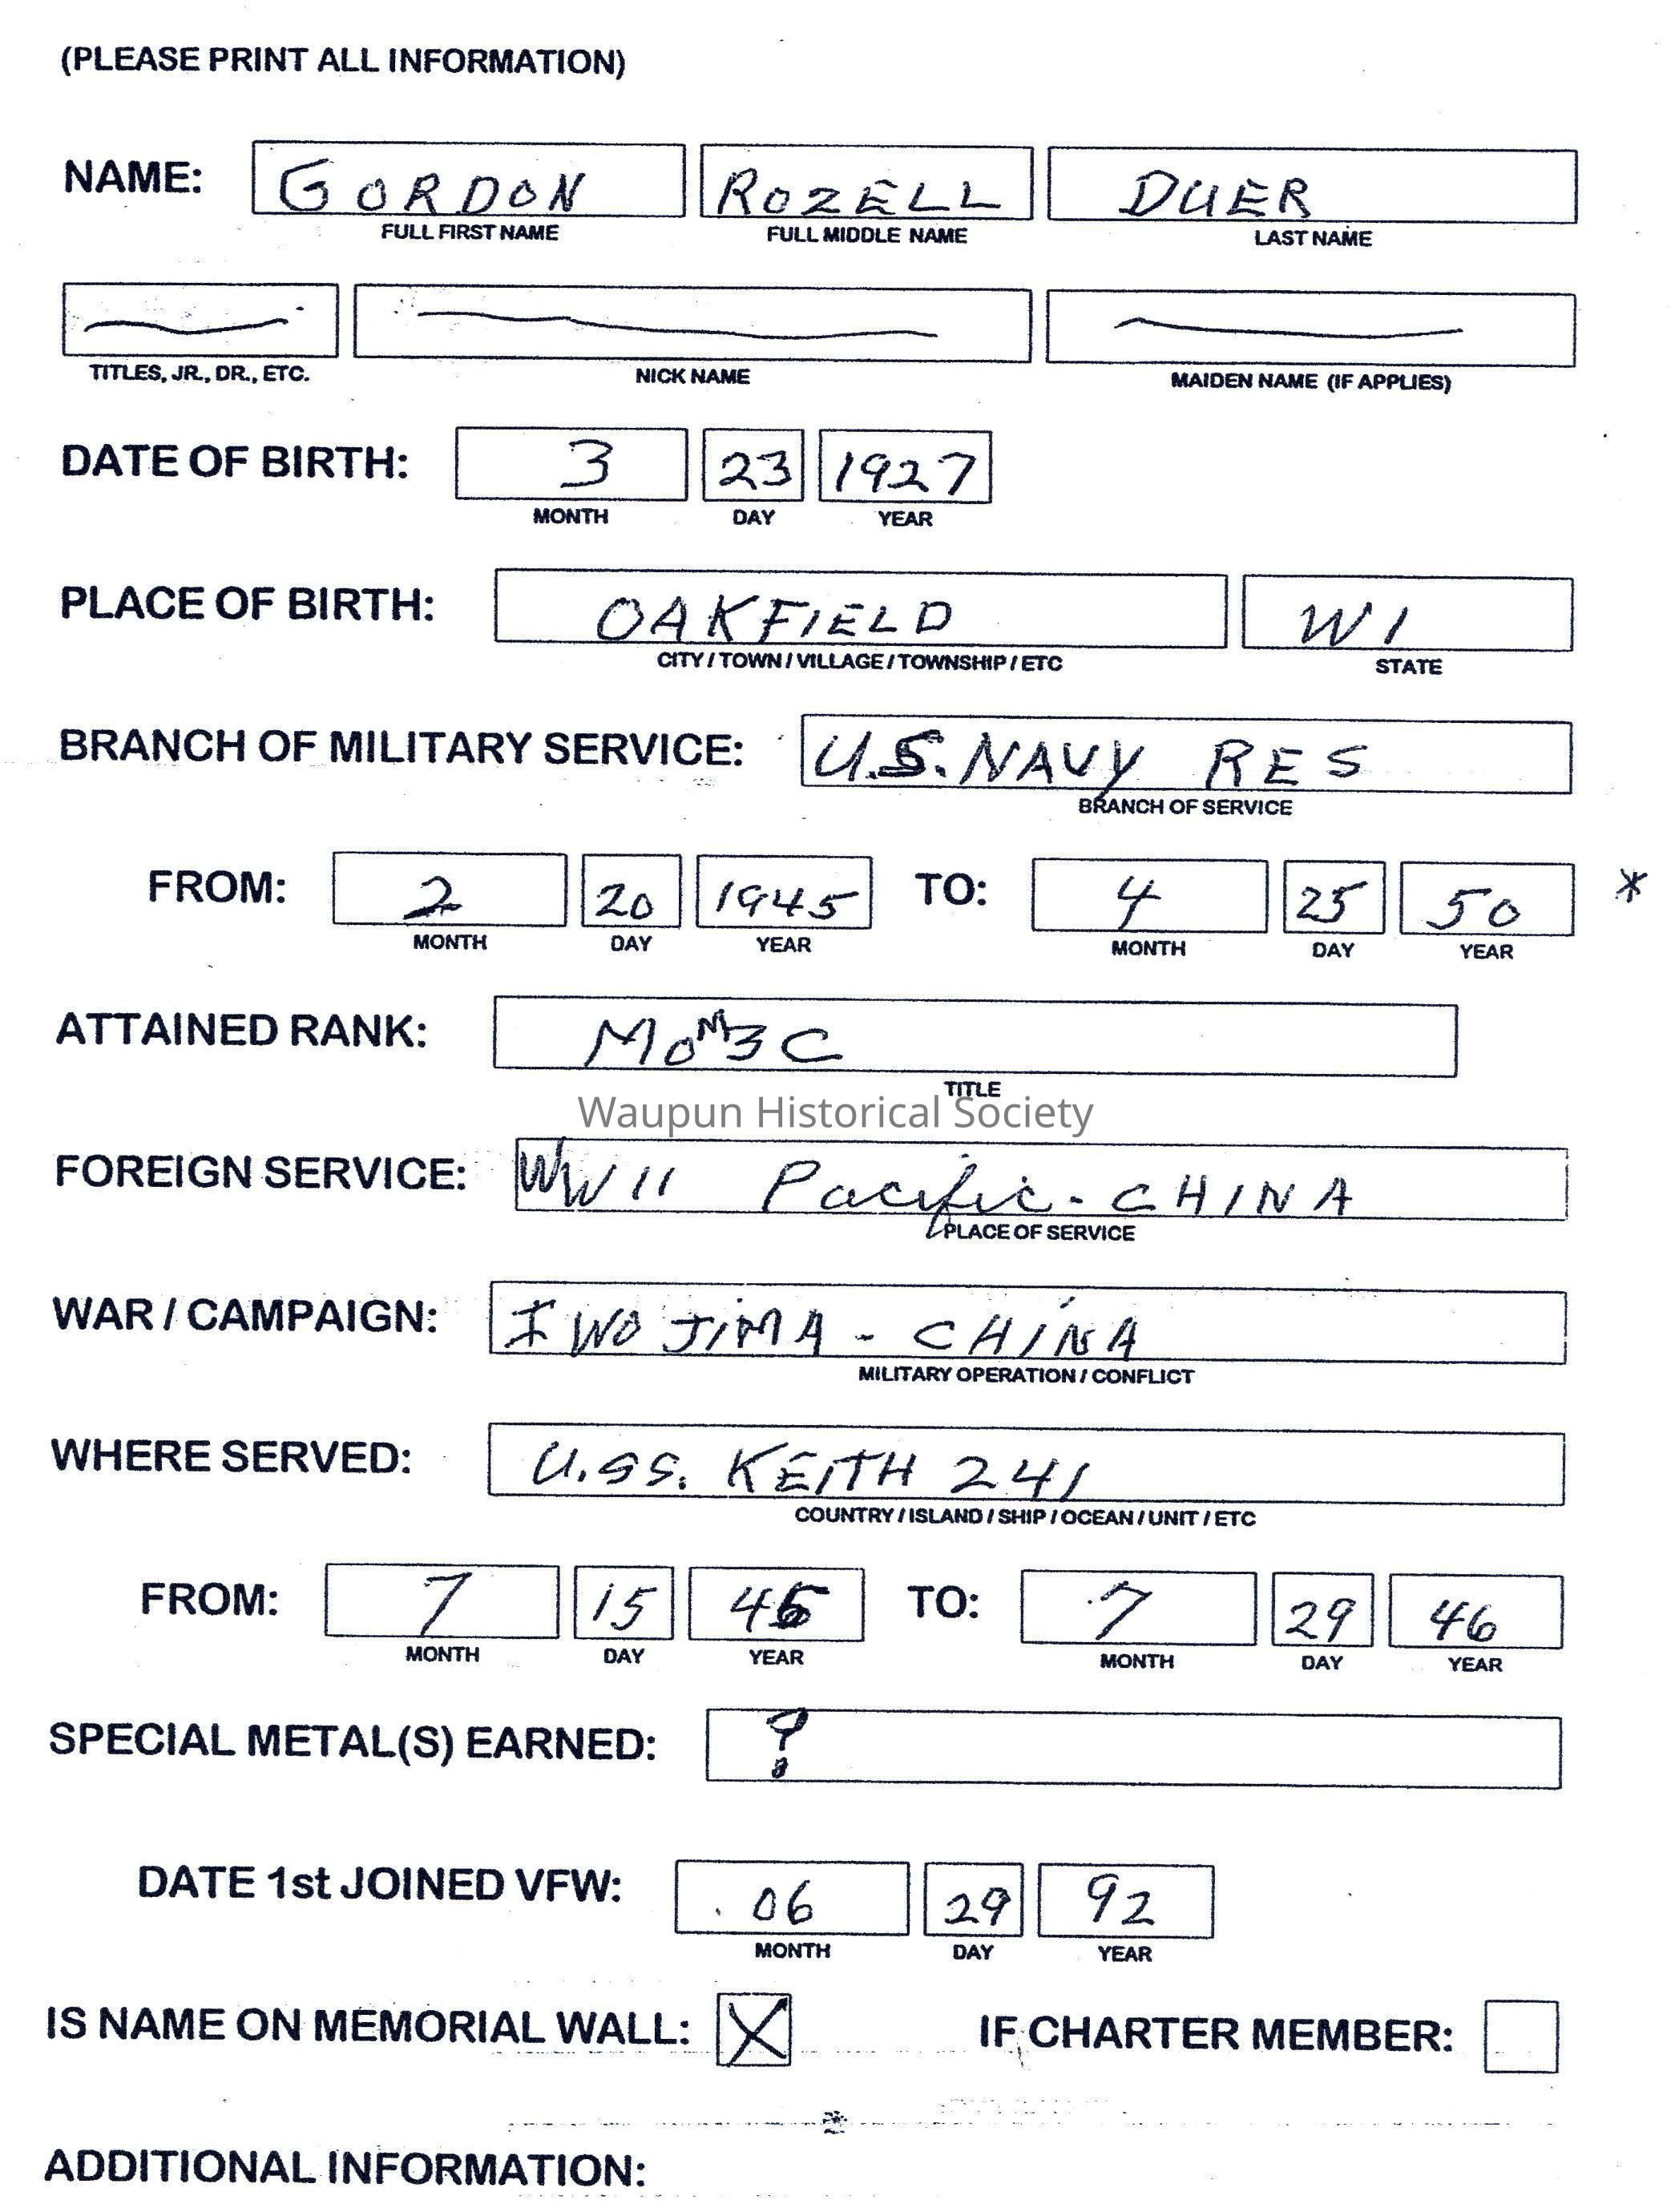 (PLEASE PRINT ALL INFORMATION)
NAME: GORDON ROZELL DUER
FULL FIRST NAME FULL MIDDLE NAME LAST NAME
TITLES, JR., DR., ETC. NICK NAME MAIDEN NAME (IF APPLIES)
DATE OF BIRTH: 3 23 1927
MONTH DAY YEAR
PLACE OF BIRTH: OAKFIELD WI
CITY / TOWN / VILLAGE / TOWNSHIP / ETC STATE
BRANCH OF MILITARY SERVICE: U.S. NAVY RES
BRANCH OF SERVICE
FROM: 2 20 1945 TO: 4 25 50 *
MONTH DAY YEAR MONTH DAY YEAR
ATTAINED RANK: MoM3C
TITLE
Waupun Historical Society
FOREIGN SERVICE: WW II Pacific - CHINA
PLACE OF SERVICE
WAR / CAMPAIGN: IWO JIMA - CHINA
MILITARY OPERATION / CONFLICT
WHERE SERVED: U.SS. KEITH 241
COUNTRY / ISLAND / SHIP / OCEAN / UNIT / ETC
FROM: 7 15 TO: 7 29 46
MONTH DAY YEAR MONTH DAY YEAR
SPECIAL METAL(S) EARNED: ?
DATE 1st JOINED VFW: 06 29 92
MONTH DAY YEAR
IS NAME ON MEMORIAL WALL: X IF CHARTER MEMBER:
ADDITIONAL INFORMATION: